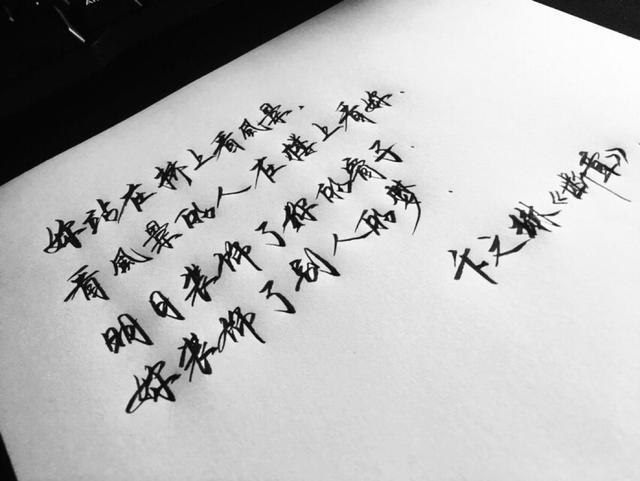 妳站在桥上看風景.
看風景的人在楼上看妳.
明月装饰了你的窗子.
妳装饰了别人的梦
卞之琳《断章》